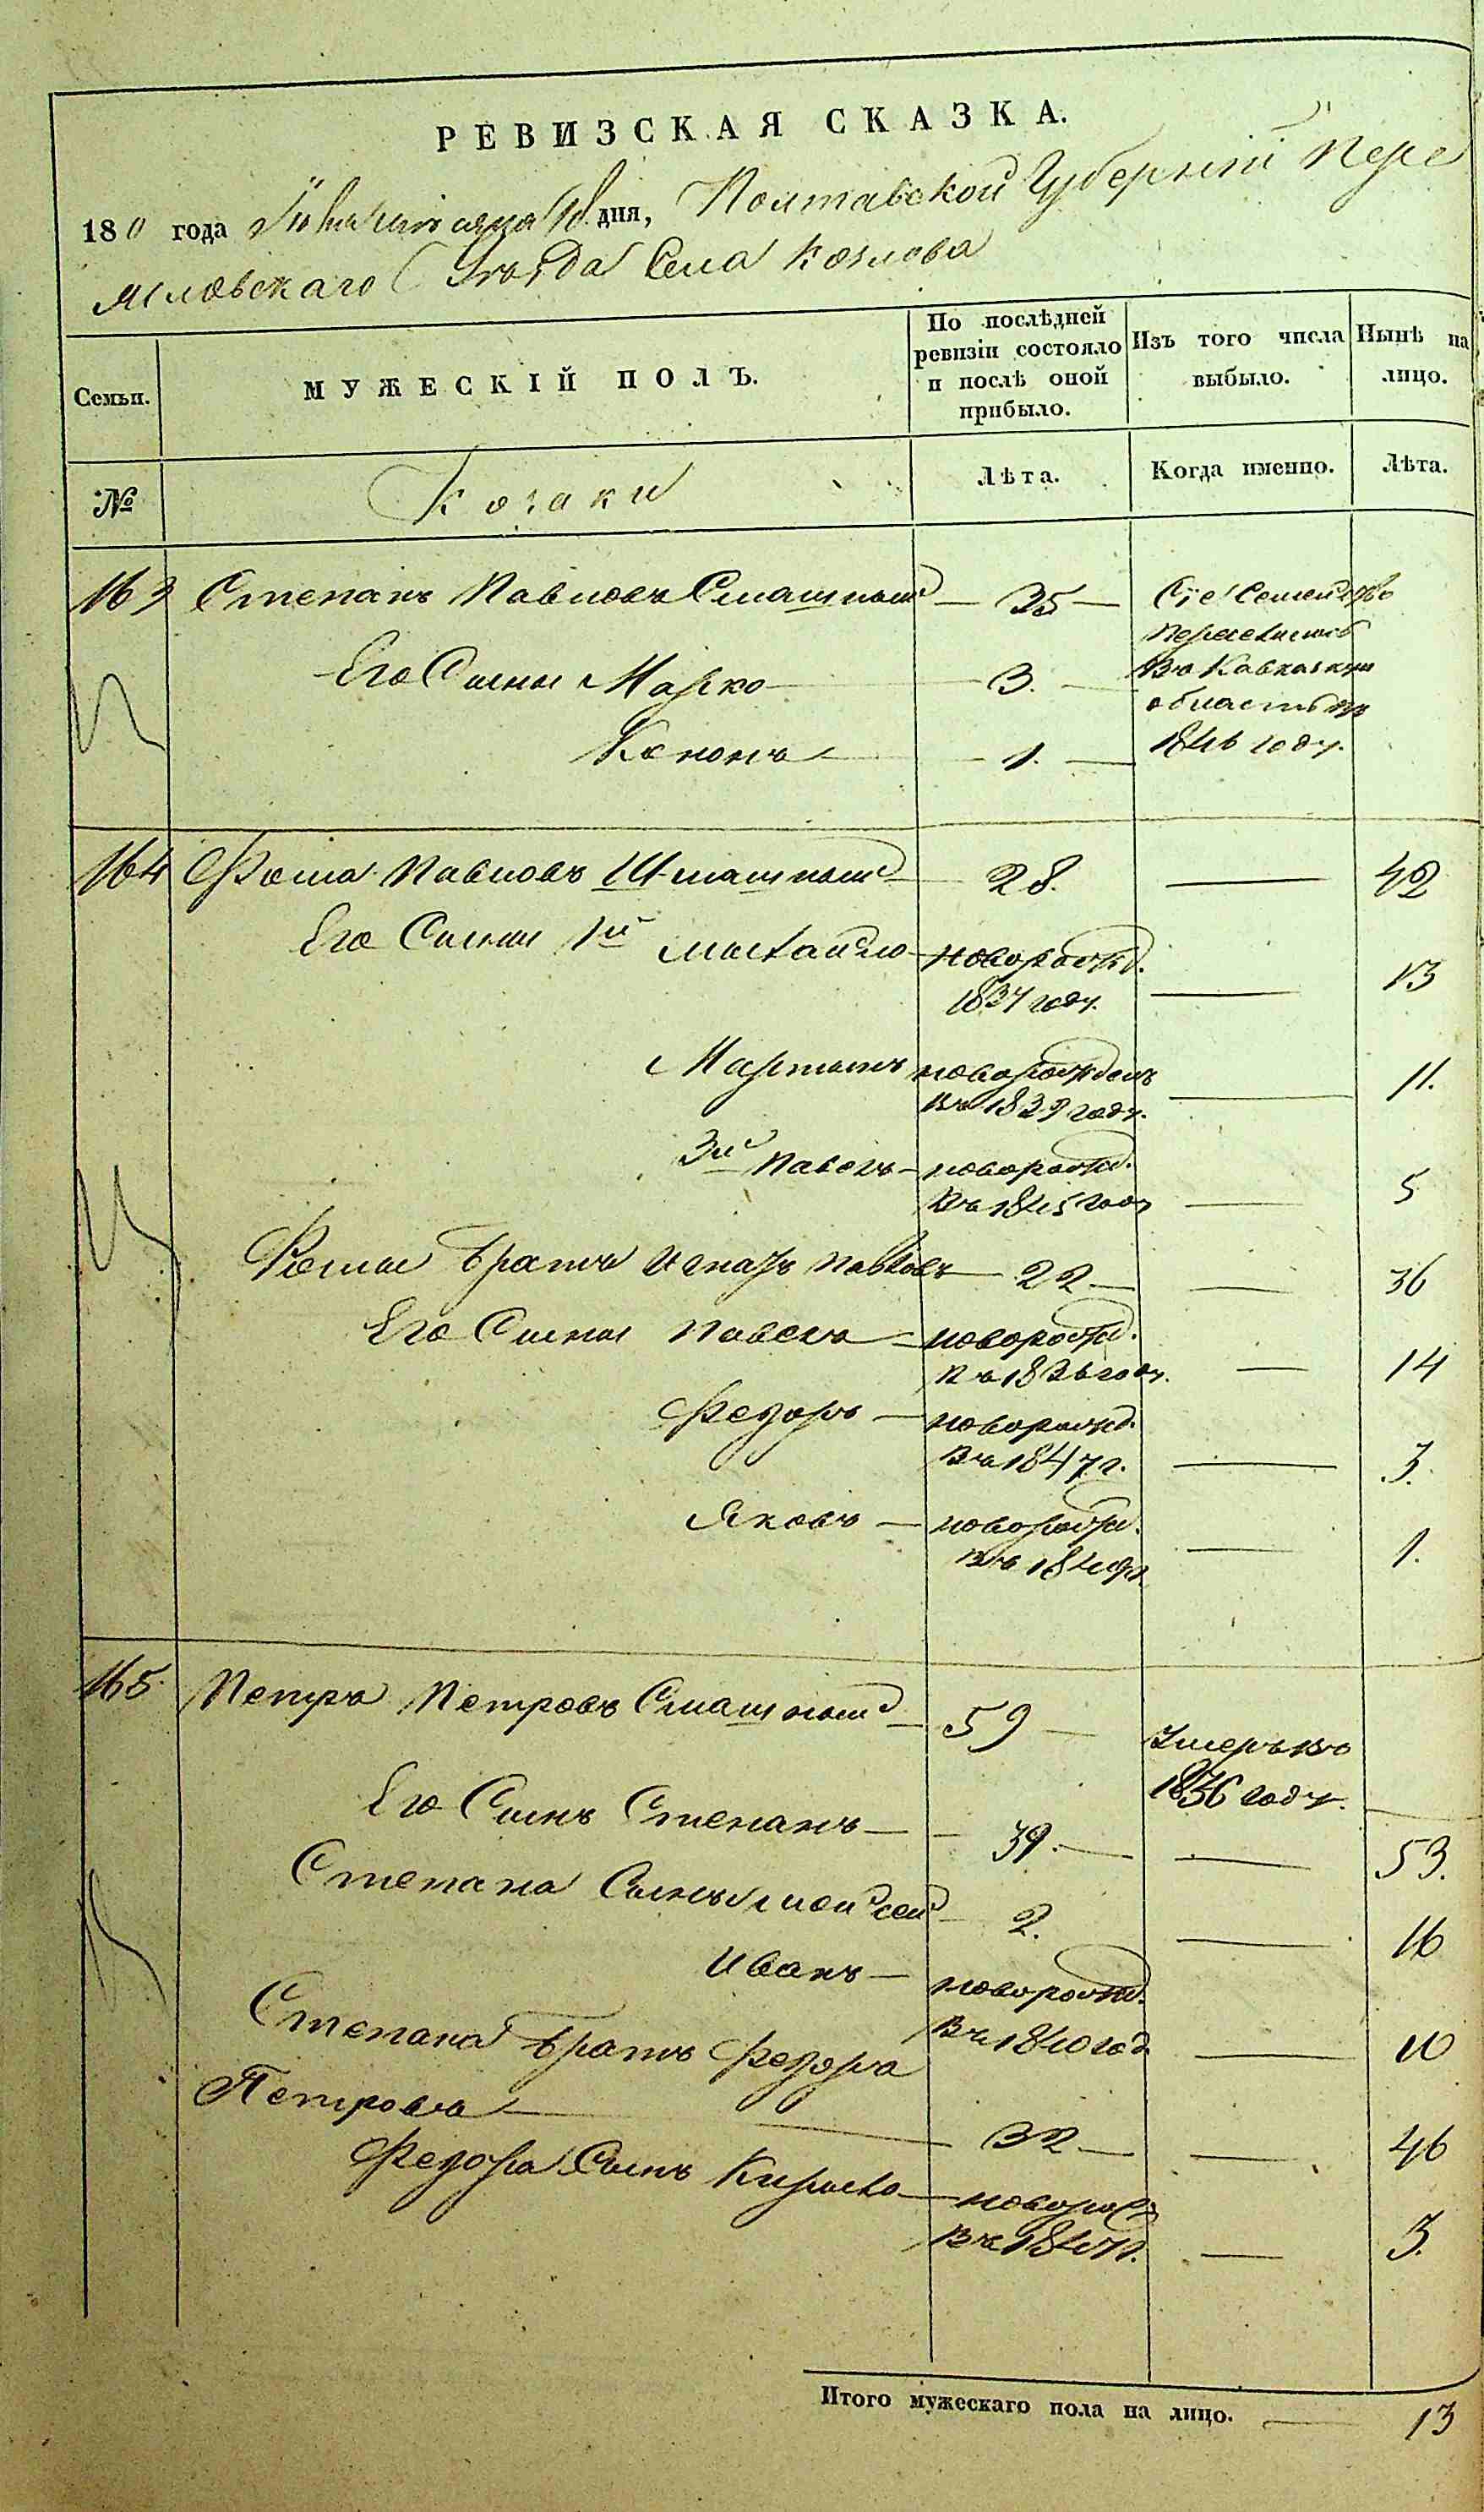 РЕВИЗСКАЯ СКАЗКА.
180 года дня, Полтавской Губерніи Пере
яславскаго Уѣзда Села Козлова
Семьи.
МУЖЕСКІЙ ПОЛЪ.
По послѣдней ревизіи состояло и послѣ оной прибыло.
Изъ того числа выбыло.
Нынѣ на лицо.
№
Козаки
Лѣта.
Когда именно.
Лѣта.
163 Степанъ Павловъ 35 Сіе Семейство
переселилось
Его Сыны Марко 3. въ Кавказскую
область въ
Кононъ 1. 1846 году.
164 Фома Павловъ 28. 42
Его Сыны 1й Михайло новорожд. 13
1837 году.
Мартынъ новорожденъ 11.
въ 1839 году.
3й Павелъ новорожд. 5
въ 1845 году
Фомы братъ Игнатъ Павловъ 22 36
Его Сыны Павелъ новорожд. 14
въ 1836 году.
Федоръ новорожд.
въ 1847 г. 3.
Яковъ новорожд.
въ 1849 г. 1.
165 Петръ Петровъ 59 Умеръ въ
1836 году.
Его Сынъ Степанъ 39. 53.
Степана Сыны Мойсей 2. 16
Иванъ новорожд.
въ 1840 год 10
Степана братъ Федоръ
Петровъ 32 46
Федора Сынъ Кирило новорож
въ 1847 г. 3.
Итого мужескаго пола на лицо. 13